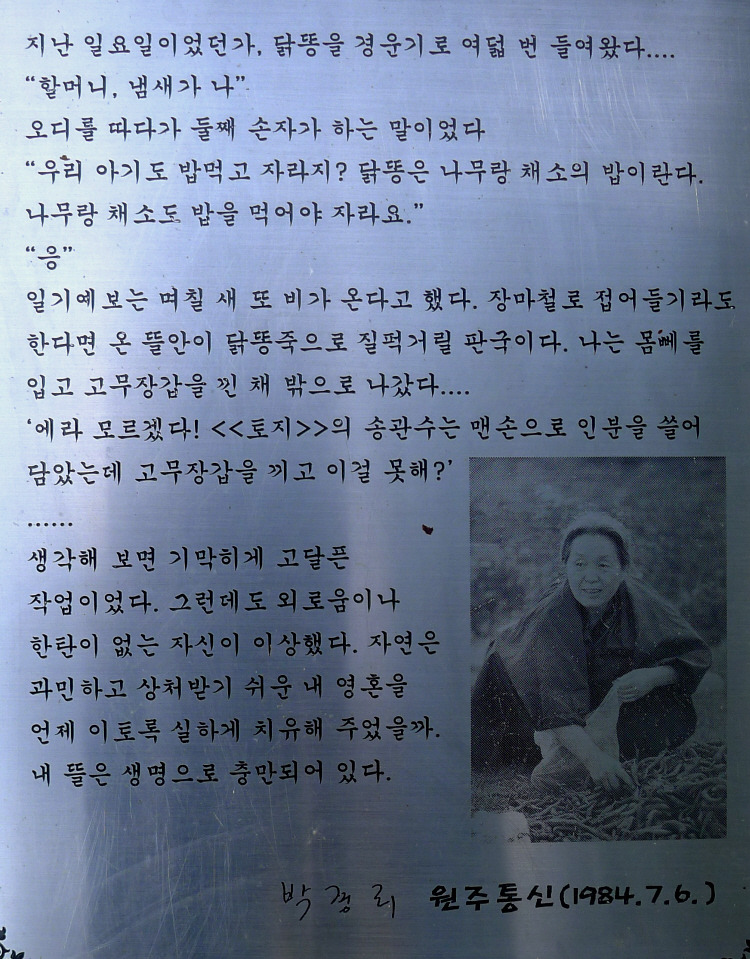 지난 일요일이었던가, 닭똥을 경운기로 여덟 번 들여왔다....
“할머니, 냄새가 나”
오디를 따다가 둘째 손자가 하는 말이었다
“우리 아기도 밥먹고 자라지? 닭똥은 나무랑 채소의 밥이란다.
나무랑 채소도 밥을 먹어야 자라요.”
“응”
일기예보는 며칠 새 또 비가 온다고 했다. 장마철로 접어들기라도
한다면 온 뜰안이 닭똥죽으로 질퍽거릴 판국이다. 나는 몸뻬를
입고 고무장갑을 낀 채 밖으로 나갔다....
‘에라 모르겠다! <<토지>>의 송관수는 맨손으로 인분을 쓸어
담았는데 고무장갑을 끼고 이걸 못해?’
......
생각해 보면 기막히게 고달픈
작업이었다. 그런데도 외로움이나
한탄이 없는 자신이 이상했다. 자연은
과민하고 상처받기 쉬운 내 영혼을
언제 이토록 실하게 치유해 주었을까.
내 뜰은 생명으로 충만되어 있다.
박경리 원주통신(1984.7.6.)